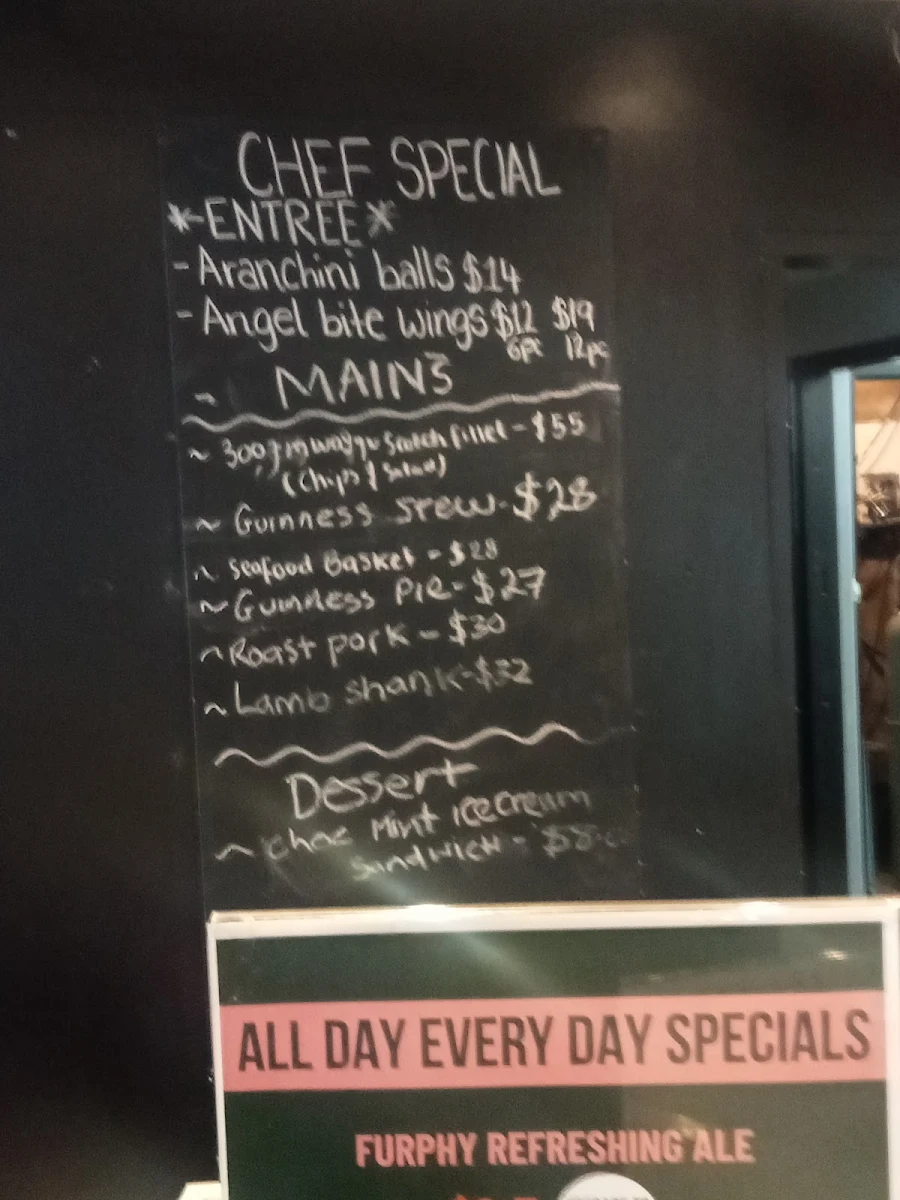 CHEF SPECIAL
*ENTREE*
- Aranchini balls $14
- Angel bite wings $12 $19
6pc 12pc
- MAINS
~ 300gm wagyu Scotch fillet - $55
(Chips & Salad)
~ Guinness Stew - $28
~ Seafood Basket - $28
~ Guinness Pie - $27
~ Roast pork - $30
~ Lamb shank - $32
Dessert
~ choc Mint icecream
Sandwich - $8
ALL DAY EVERY DAY SPECIALS
FURPHY REFRESHING ALE